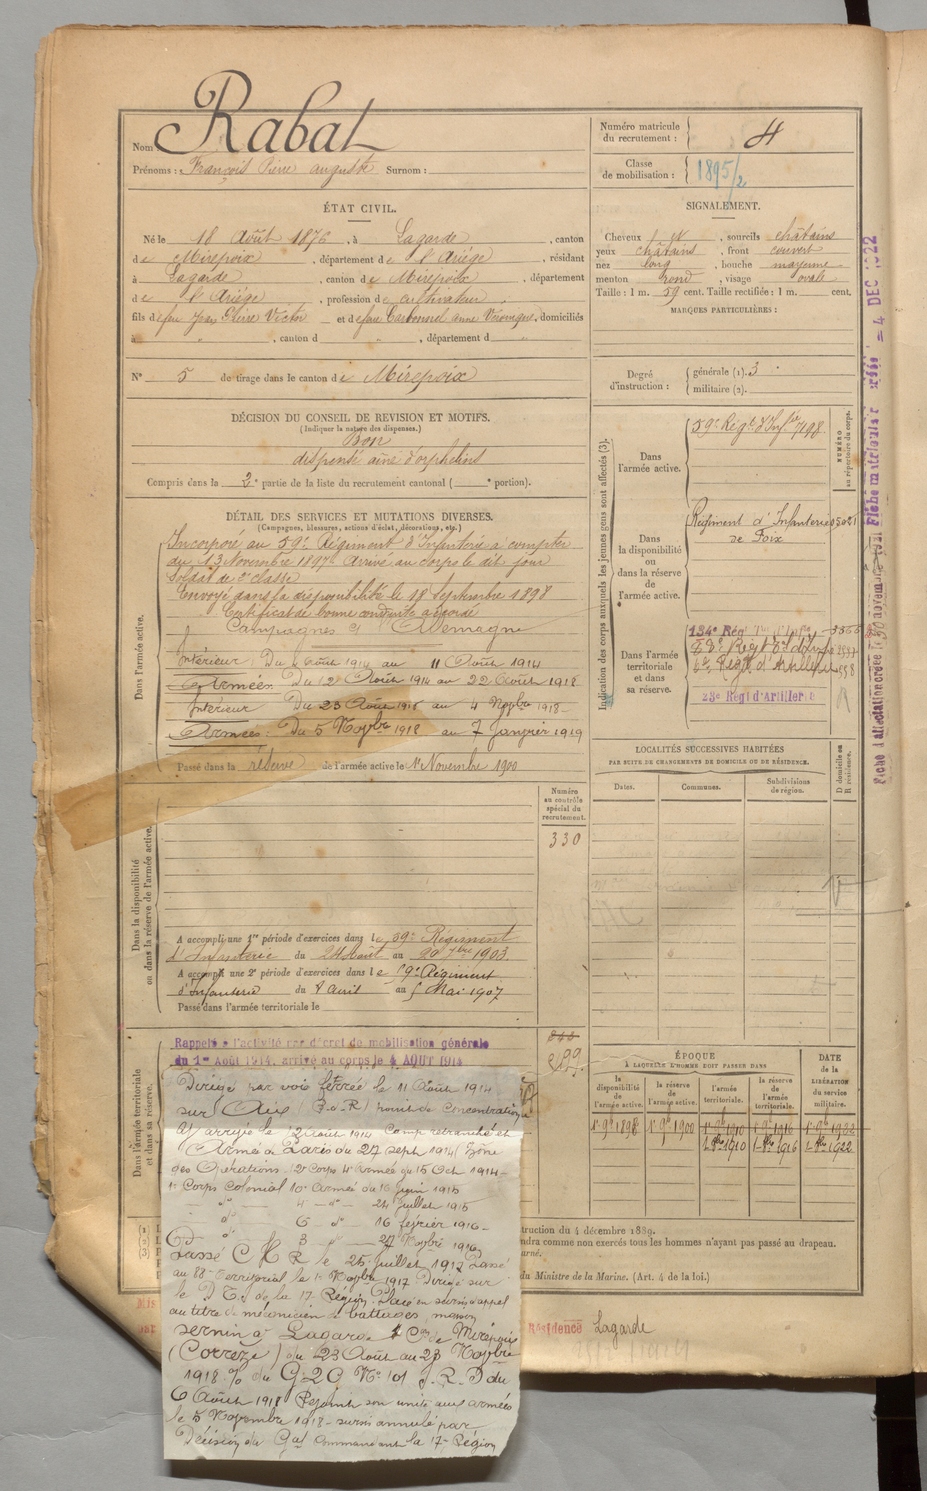 Nom Rabat
Prénoms : François Pierre auguste Surnom :
Numéro matricule du recrutement : 4
Classe de mobilisation : 1895/2
ÉTAT CIVIL.
Né le 18 Août 1876, à Lagarde, canton
de Mirepoix, département de l'Ariège, résidant
à Lagarde, canton de Mirepoix, département
de l'Ariège, profession de cultivateur
fils de feu Jean Victor et de feue Carbonnel anne Véronique, domiciliés
à " , canton d " , département d "
N° 5 de tirage dans le canton de Mirepoix
SIGNALEMENT.
Cheveux , sourcils châtains
yeux châtains, front couvert
nez long, bouche moyenne
menton rond, visage ovale
Taille : 1 m. 59 cent. Taille rectifiée : 1 m. cent.
MARQUES PARTICULIÈRES :
Degré d'instruction : générale (1). 3
militaire (2).
DÉCISION DU CONSEIL DE REVISION ET MOTIFS.
(Indiquer la nature des dispenses.)
Bon
dispensé aîné d'orphelins
Compris dans la 2e partie de la liste du recrutement cantonal ( e portion).
DÉTAIL DES SERVICES ET MUTATIONS DIVERSES.
(Campagnes, blessures, actions d'éclat, décorations, etc.)
Dans l'armée active.
Incorporé au 59e Régiment d'Infanterie à compter
du 13 Novembre 1897. Arrivé au corps le dit jour
Soldat de 2e classe
Envoyé dans la disponibilité le 18 Septembre 1898
Certificat de bonne conduite accordé
Campagnes Allemagne
Intérieur : Du 4 Août 1914 au 11 Août 1914
Armées : Du 12 Août 1914 au 22 Août 1918
Intérieur Du 23 Août 1918 au 4 Novbre 1918
Armées : Du 5 Novbre 1918 au 7 Janvier 1919
Passé dans la réserve de l'armée active le 1er Novembre 1900
Indication des corps auxquels les jeunes gens sont affectés (3).
NUMÉRO au répertoire du corps.
Dans l'armée active.
59e Régt d'Infie 7198
Dans la disponibilité ou dans la réserve de l'armée active.
Régiment d'Infanterie
de Foix
Dans l'armée territoriale et dans sa réserve.
134e Rég
23e Régt d'Artillerie
Fiche matricule
4 DEC 1922
LOCALITÉS SUCCESSIVES HABITÉES
PAR SUITE DE CHANGEMENTS DE DOMICILE OU DE RÉSIDENCE.
Dates. Communes. Subdivisions de région. D domicile ou R résidence.
Numéro au contrôle spécial du recrutement.
330
Dans la disponibilité ou dans la réserve de l'armée active.
A accompli une 1re période d'exercices dans le 59e Régiment
d'Infanterie du 24 Août au 20 7bre 1903
A accompli une 2e période d'exercices dans le 59e Régiment
d'Infanterie du 8 Avril au 5 Mai 1907
Passé dans l'armée territoriale le
Dans l'armée territoriale et dans sa réserve.
Rappelé à l'activité par décret de mobilisation générale
du 1er Août 1914, arrivé au corps le 4 AOUT 1914
Dirigé par voie ferrée le 11 Août 1914
sur Aix (B.d.R) point de concentration
arrivé le 12 Août 1914 Camp retranché et
Armée de Paris du 27 sept 1914 Zône
des Opérations 2e Corps 4e Armée du 15 Oct 1914
1er Corps Colonial 10e Armée du 16 juin 1915
- do - 4 - do - 24 juillet 1915
- do 6 - do - 16 février 1916
do 3 " 27 Novbre 1916
Passé C H R le 25 juillet 1917 Passé
au 88e Territorial le 1er Novbre 1917 Dirigé sur
le D. T. de la 17e Région. Placé en sursis d'appel
au titre de mécanicien de battages maison
Sernin à Lagarde Con de Mirepoix
(Corrèze) du 23 Août au 23 Novbre
1918 % du G.Q.G No 101 du
6 Août 1918 Rejoint son unité aux armées
le 5 Novembre 1918 sursis annulé par
Décision du Gal Commandant la 17e Région
ÉPOQUE
À LAQUELLE L'HOMME DOIT PASSER DANS
la disponibilité de l'armée active. la réserve de l'armée active. l'armée territoriale. la réserve de l'armée territoriale.
DATE de la LIBÉRATION du service militaire.
1er 9bre 1898 1er 9bre 1900 1er 9bre 1910 1er 9bre 1916 1er 9bre 1922
1er 8bre 1910 1er 8bre 1916 1er 8bre 1922
truction du 4 décembre 1889.
ndra comme non exercés tous les hommes n'ayant pas passé au drapeau.
urné.
du Ministre de la Marine. (Art. 4 de la loi.)
Résidence Lagarde